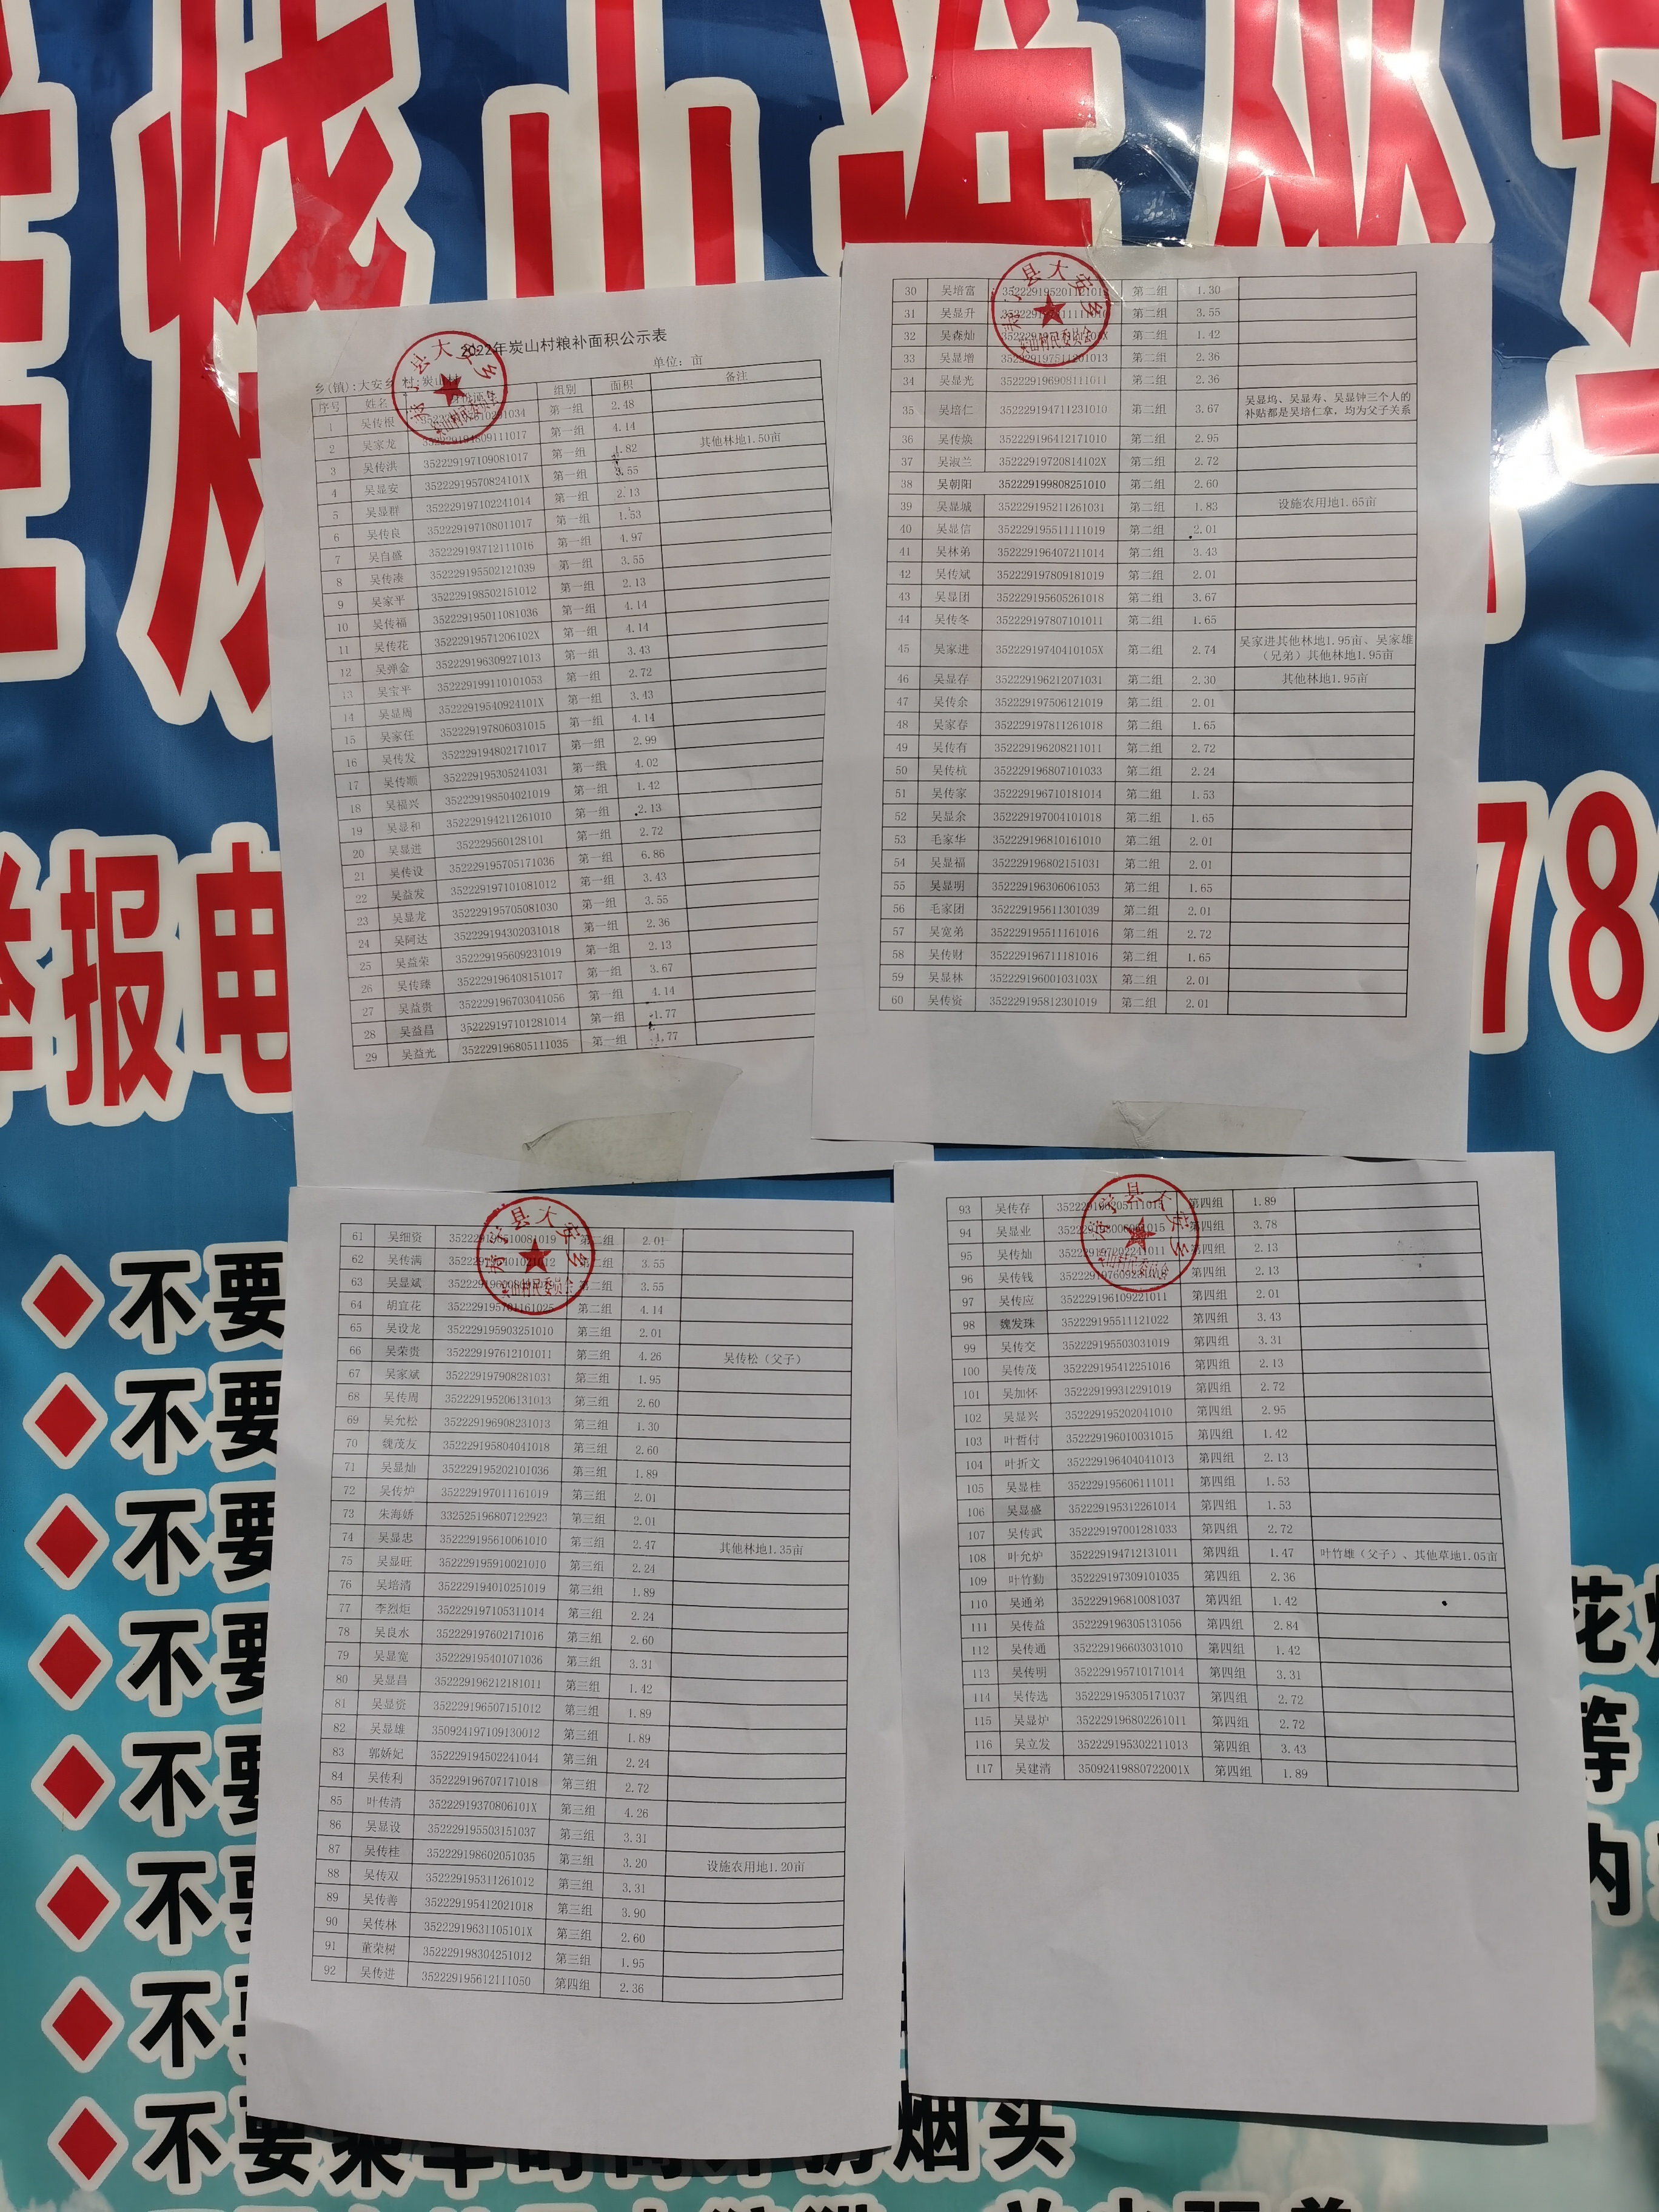 2022年炭山村粮补面积公示表
乡(镇):大安乡 村:炭山村 单位：亩
序号 姓名 组别 面积 备注
1 吴传根 第一组 2.48
2 吴家龙 第一组 4.14
3 吴传洪 352229197109081017 第一组 1.82 其他林地1.50亩
4 吴显安 35222919570824101X 第一组 3.55
5 吴显群 352229197102241014 第一组 2.13
6 吴传良 352229197108011017 第一组 1.53
7 吴自盛 352229193712111016 第一组 4.97
8 吴传凑 352229195502121039 第一组 3.55
9 吴家平 352229198502151012 第一组 2.13
10 吴传福 352229195011081036 第一组 4.14
11 吴传花 35222919571206102X 第一组 4.14
12 吴弹金 352229196309271013 第一组 3.43
13 吴宝平 352229199110101053 第一组 2.72
14 吴显周 35222919540924101X 第一组 3.43
15 吴家任 352229197806031015 第一组 4.14
16 吴传发 352229194802171017 第一组 2.99
17 吴传顺 352229195305241031 第一组 4.02
18 吴福兴 352229198504021019 第一组 1.42
19 吴显和 352229194211261010 第一组 2.13
20 吴显进 352229560128101 第一组 2.72
21 吴传设 352229195705171036 第一组 6.86
22 吴益发 352229197101081012 第一组 3.43
23 吴显龙 352229195705081030 第一组 3.55
24 吴阿达 352229194302031018 第一组 2.36
25 吴益荣 352229195609231019 第一组 2.13
26 吴传臻 352229196408151017 第一组 3.67
27 吴益贵 352229196703041056 第一组 4.14
28 吴益昌 352229197101281014 第一组 1.77
29 吴益光 352229196805111035 第一组 1.77
30 吴培富 第二组 1.30
31 吴显升 第二组 3.55
32 吴森灿 第二组 1.42
33 吴显增 352229197511201013 第二组 2.36
34 吴显光 352229196908111011 第二组 2.36
35 吴培仁 352229194711231010 第二组 3.67 吴显坞、吴显寿、吴显钟三个人的
补贴都是吴培仁拿，均为父子关系
36 吴传焕 352229196412171010 第二组 2.95
37 吴淑兰 35222919720814102X 第二组 2.72
38 吴朝阳 352229199808251010 第二组 2.60
39 吴显城 352229195211261031 第二组 1.83 设施农用地1.65亩
40 吴显信 352229195511111019 第二组 2.01
41 吴林弟 352229196407211014 第二组 3.43
42 吴传斌 352229197809181019 第二组 2.01
43 吴显团 352229195605261018 第二组 3.67
44 吴传冬 352229197807101011 第二组 1.65
45 吴家进 35222919740410105X 第二组 2.74 吴家进其他林地1.95亩、吴家雄
（兄弟）其他林地1.95亩
46 吴显存 352229196212071031 第二组 2.30 其他林地1.95亩
47 吴传余 352229197506121019 第二组 2.01
48 吴家春 352229197811261018 第二组 1.65
49 吴传有 352229196208211011 第二组 2.72
50 吴传杭 352229196807101033 第二组 2.24
51 吴传家 352229196710181014 第二组 1.53
52 吴显余 352229197004101018 第二组 1.65
53 毛家华 352229196810161010 第二组 2.01
54 吴显福 352229196802151031 第二组 2.01
55 吴显明 352229196306061053 第二组 1.65
56 毛家团 352229195611301039 第二组 2.01
57 吴宽弟 352229195511161016 第二组 2.72
58 吴传财 352229196711181016 第二组 1.65
59 吴显林 35222919600103103X 第二组 2.01
60 吴传资 352229195812301019 第二组 2.01
61 吴细资 第二组 2.01
62 吴传满 第二组 3.55
63 吴显斌 第二组 3.55
64 胡宜花 352229195701161025 第二组 4.14
65 吴设龙 352229195903251010 第三组 2.01
66 吴荣贵 352229197612101011 第三组 4.26 吴传松（父子）
67 吴家斌 352229197908281031 第三组 1.95
68 吴传周 352229195206131013 第三组 2.60
69 吴允松 352229196908231013 第三组 1.30
70 魏茂友 352229195804041018 第三组 2.60
71 吴显灿 352229195202101036 第三组 1.89
72 吴传炉 352229197011161019 第三组 2.01
73 朱海娇 332525196807122923 第三组 2.01
74 吴显忠 352229195610061010 第三组 2.47 其他林地1.35亩
75 吴显旺 352229195910021010 第三组 2.24
76 吴培清 352229194010251019 第三组 1.89
77 李烈炬 352229197105311014 第三组 2.24
78 吴良水 352229197602171016 第三组 2.60
79 吴显宽 352229195401071036 第三组 3.31
80 吴显昌 352229196212181011 第三组 1.42
81 吴显资 352229196507151012 第三组 1.89
82 吴显雄 350924197109130012 第三组 1.89
83 郭娇妃 352229194502241044 第三组 2.24
84 吴传利 352229196707171018 第三组 2.72
85 叶传清 35222919370806101X 第三组 4.26
86 吴显设 352229195503151037 第三组 3.31
87 吴传桂 352229198602051035 第三组 3.20 设施农用地1.20亩
88 吴传双 352229195311261012 第三组 3.31
89 吴传善 352229195412021018 第三组 3.90
90 吴传林 35222919631105101X 第三组 2.60
91 董荣树 352229198304251012 第三组 1.95
92 吴传进 352229195612111050 第四组 2.36
93 吴传存 第四组 1.89
94 吴显业 第四组 3.78
95 吴传灿 第四组 2.13
96 吴传钱 第四组 2.13
97 吴传应 352229196109221011 第四组 2.01
98 魏发珠 352229195511121022 第四组 3.43
99 吴传交 352229195503031019 第四组 3.31
100 吴传茂 352229195412251016 第四组 2.13
101 吴加怀 352229199312291019 第四组 2.72
102 吴显兴 352229195202041010 第四组 2.95
103 叶哲付 352229196010031015 第四组 1.42
104 叶折文 352229196404041013 第四组 2.13
105 吴显桂 352229195606111011 第四组 1.53
106 吴显盛 352229195312261014 第四组 1.53
107 吴传武 352229197001281033 第四组 2.72
108 叶允炉 352229194712131011 第四组 1.47 叶竹雄（父子）、其他草地1.05亩
109 叶竹勤 352229197309101035 第四组 2.36
110 吴通弟 352229196810081037 第四组 1.42
111 吴传益 352229196305131056 第四组 2.84
112 吴传通 352229196603031010 第四组 1.42
113 吴传明 352229195710171014 第四组 3.31
114 吴传选 352229195305171037 第四组 2.72
115 吴显炉 352229196802261011 第四组 2.72
116 吴立发 352229195302211013 第四组 3.43
117 吴建清 35092419880722001X 第四组 1.89
烧山
举报电 78
不要
不要
不要
不要 花
不要 等
不要 内
不
不要乘车时向外扔烟头